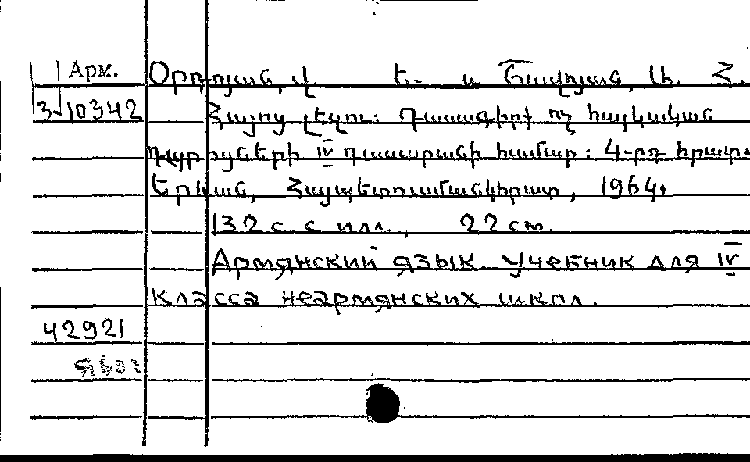 Арм. Օրդոյան, վ Ե. և Շավոյան, Ա. Հ.
3-10342 Հայոց լեզու: Դասագիրք ոչ հայկական
դպրոցների IV դասարանի համար: 4-րդ հրատ.
Երևան, Հայպետուսմանկհրատ, 1964.
132 с. с илл., 22 см.
Армянский язык. Учебник для IV
класса неармянских школ.
42921